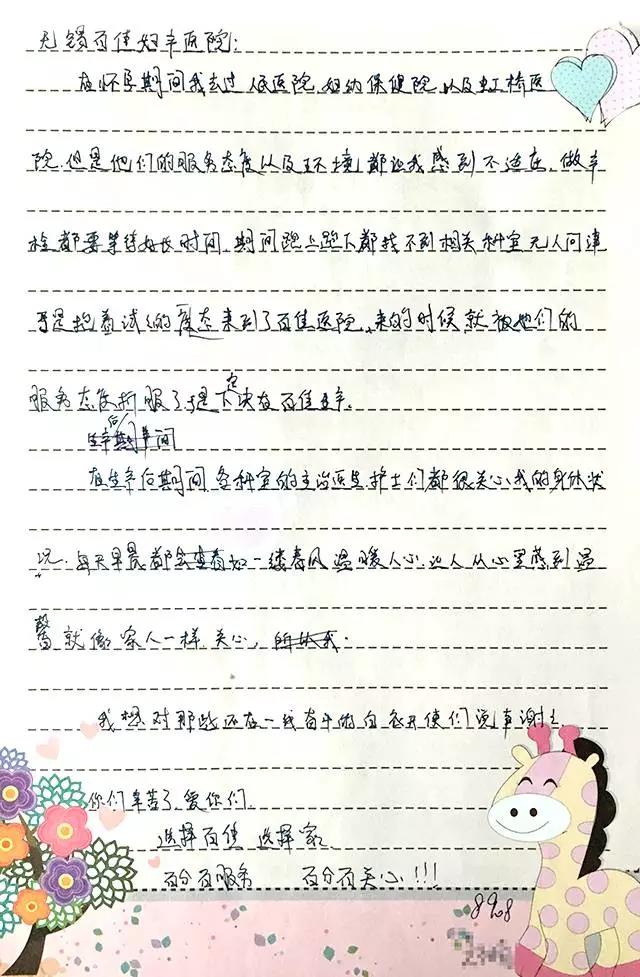 无锡百佳妇产医院:
在怀孕期间我去过人民医院、妇幼保健院以及虹桥医
院.但是他们的服务态度以及环境都让我感到不适应,做产
检都要等待好长时间,期间跑上跑下都找不到相关科室无人问津
于是抱着试试的心态来到了百佳医院,来的时候就被他们的
服务态度折服了于是下定决在百佳生产.
在生产后期间,各科室的主治医生护士们都很关心我的身体状
况.每天早晨都会查看如一缕春风温暖人心让人从心里感到温
馨就像家人一样关心,
我想对那些还在一线奋斗的白衣天使们说声谢谢.
你们辛苦了,爱你们.
选择百佳 选择家
百分百服务 百分百关心!!!